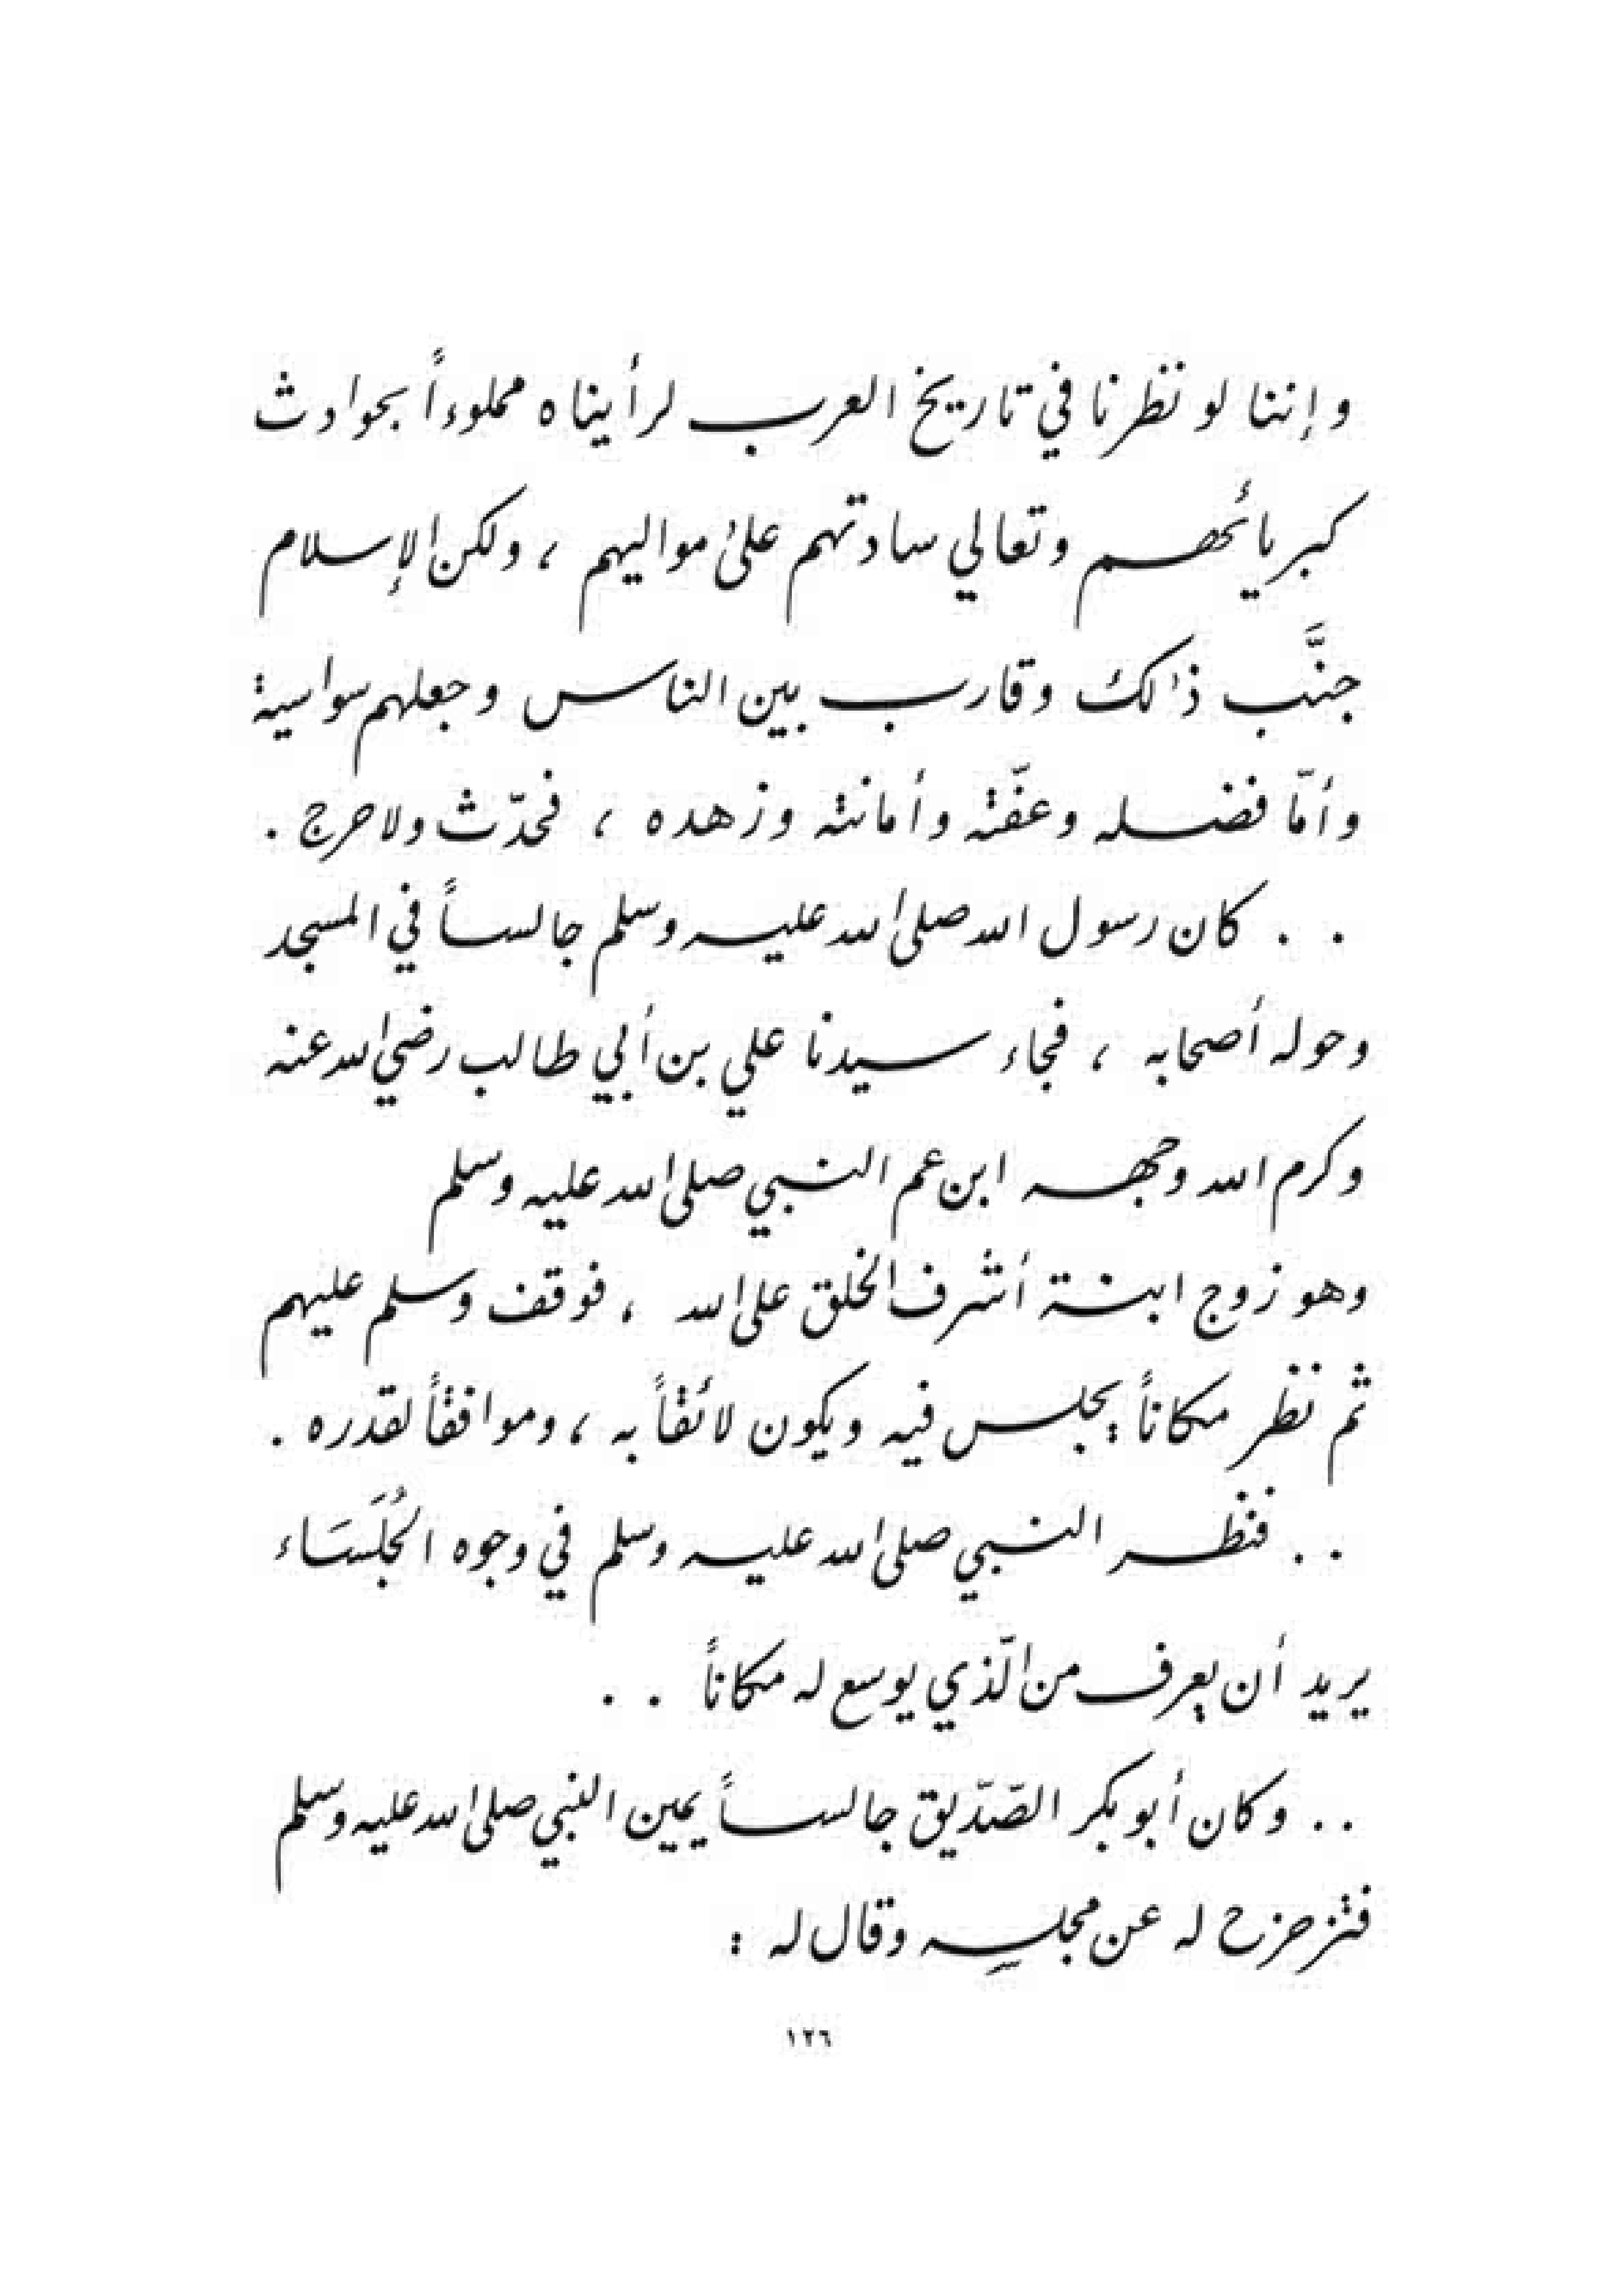 وإننا لو نظرنا في تاريخ العرب لرأيناه مملوءاً بحوادث
كبريائهم وتعالي سادتهم على مواليهم ، ولكن الإسلام
جنَّب ذالك وقارب بين الناس وجعلهم سواسية
وأمّا فضله وعفّته وأمانته وزهده ، فحدّث ولا حرج .
. . كان رسول الله صلى الله عليه وسلم جالساً في المسجد
وحوله أصحابه ، فجاء سيدنا علي بن أبي طالب رضي الله عنه
وكرم الله وجهه ابن عم النبي صلى الله عليه وسلم
وهو زوج ابنة أشرف الخلق على الله ، فوقف وسلم عليهم
ثم نظر مكاناً يجلس فيه ويكون لائقاً به ، وموافقاً لقدره .
. . فنظر النبي صلى الله عليه وسلم في وجوه الجُلَسَاء
يريد أن يعرف من الّذي يوسع له مكاناً . .
. . وكان أبو بكر الصّدّيق جالساً يمين النبي صلى الله عليه وسلم
فتزحزح له عن مجلسِه وقال له :
١٢٦